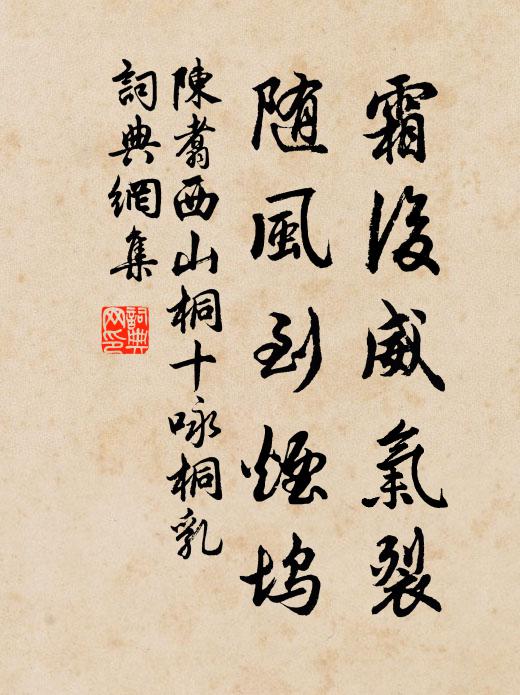 霜後威氣裂
随風到煙塢
陳翥西山桐十咏桐乳
詞典網集
詞典网印